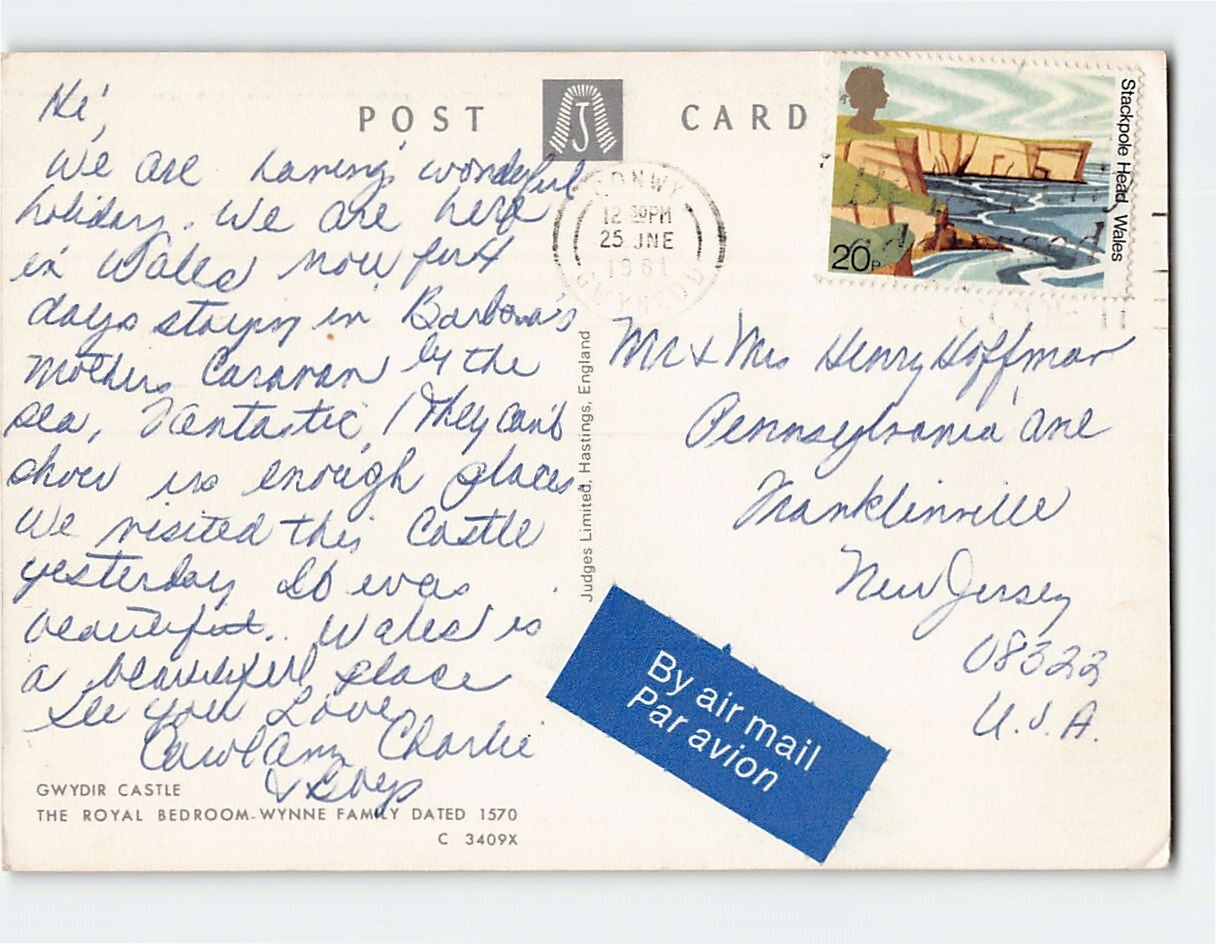 POST CARD
J
Hi,
We are having wonderful
holiday. We are here
in Wales now for 4
days staying in Barbara's
Mothers Caravan by the
sea, Fantastic! They can't
show us enough places.
We visited this Castle
yesterday It was
beautiful.. Wales is
a beautiful place
See you Love,
Carol Ann Charlie
& Boys
GWYDIR CASTLE
THE ROYAL BEDROOM-WYNNE FAMILY DATED 1570
C 3409X
Judges Limited, Hastings, England
CONWY
12 30PM
25 JNE
1981
GWYNEDD
Stackpole Head Wales
20P
Mr & Mrs Henry Hoffman
Pennsylvania Ave
Franklinville
New Jersey
08322
U.S.A.
By air mail
Par avion